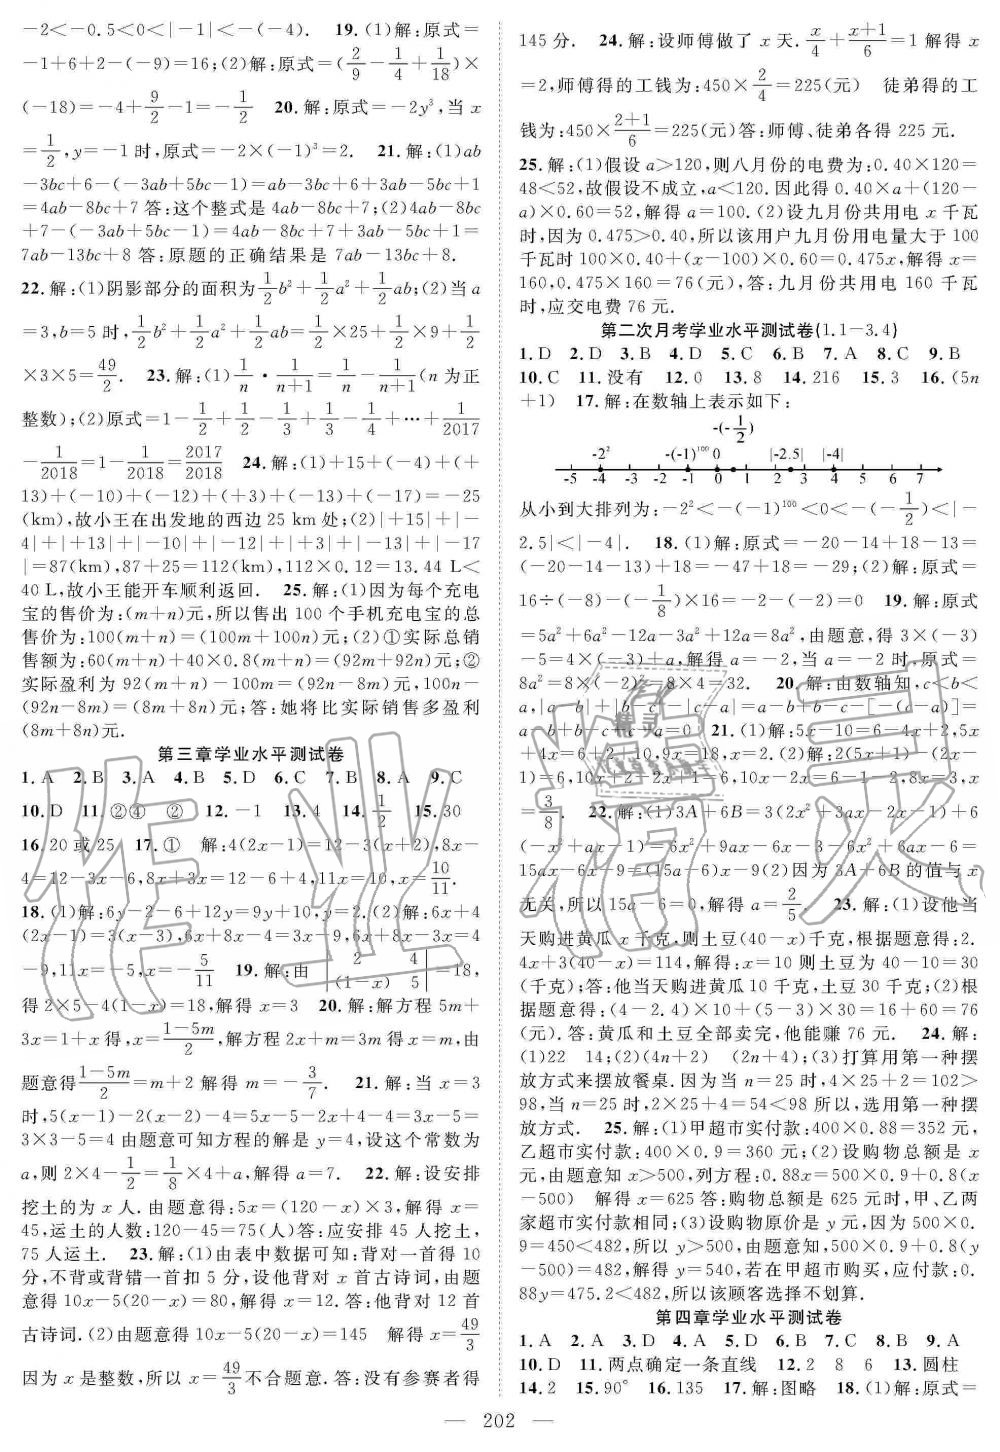 -2<-0.5<0<|-1|<-(-4). 19.(1)解:原式=
-1+6+2-(-9)=16;(2)解:原式=(2/9-1/4+1/18)×
(-18)=-4+9/2-1=-1/2 20.解:原式=-2y³,当 x
=1/2,y=-1 时,原式=-2×(-1)³=2. 21.解:(1)ab
-3bc+6-(-3ab+5bc-1)=ab-3bc+6+3ab-5bc+1
=4ab-8bc+7 答:这个整式是 4ab-8bc+7;(2)4ab-8bc
+7-(-3ab+5bc-1)=4ab-8bc+7+3ab-5bc+1=
7ab-13bc+8 答:原题的正确结果是 7ab-13bc+8.
22.解:(1)阴影部分的面积为1/2b²+1/2a²+1/2ab;(2)当 a
=3,b=5 时,1/2b²+1/2a²+1/2ab=1/2×25+1/2×9+1/2
×3×5=49/2. 23.解:(1)1/n·1/(n+1)=1/n-1/(n+1)(n 为正
整数);(2)原式=1-1/2+1/2-1/3+1/3-1/4+…+1/2017
-1/2018=1-1/2018=2017/2018 24.解:(1)+15+(-4)+(+
13)+(-10)+(-12)+(+3)+(-13)+(-17)=-25
(km),故小王在出发地的西边 25 km 处;(2)|+15|+|-
4|+|+13|+|-10|+|-12|+|+3|+|-13|+|-17
|=87(km),87+25=112(km),112×0.12=13.44 L<
40 L,故小王能开车顺利返回. 25.解:(1)因为每个充电
宝的售价为:(m+n)元,所以售出 100 个手机充电宝的总
售价为:100(m+n)=(100m+100n)元;(2)①实际总销
售额为:60(m+n)+40×0.8(m+n)=(92m+92n)元;②
实际盈利为 92(m+n)-100m=(92n-8m)元,100n-
(92n-8m)=(8m+8n)元;答:她将比实际销售多盈利
(8m+8n)元.
第三章学业水平测试卷
1.A 2.B 3.A 4.B 5.D 6.C 7.B 8.A 9.C
10.D 11.②④ ② 12.-1 13.4 14.1/2 15.30
16.20 或 25 17.① 解:4(2x-1)=12-3(x+2),8x-
4=12-3x-6,8x+3x=12-6+4,11x=10,x=10/11.
18.(1)解:6y-2-6+12y=9y+10,y=2.(2)解:6x+4
(2x-1)=3(x-3),6x+8x-4=3x-9,6x+8x-3x=4
-9,11x=-5,x=-5/11 19.解:由 |2 4; (1-x) 5|=18,
得 2×5-4(1-x)=18,解得 x=3 20.解:解方程 5m+
3x=1+x 得,x=(1-5m)/2,解方程 2x+m=3m 得 x=m,由
题意得(1-5m)/2=m+2 解得 m=-3/7. 21.解:当 x=3
时,5(x-1)-2(x-2)-4=5x-5-2x+4-4=3x-5=
3×3-5=4 由题意可知方程的解是 y=4,设这个常数为
a,则 2×4-1/2=1/8×4+a,解得 a=7. 22.解:设安排
挖土的为 x 人.由题意得:5x=(120-x)×3,解得 x=
45,运土的人数:120-45=75(人)答:应安排 45 人挖土,
75 人运土. 23.解:(1)由表中数据可知:背对一首得 10
分,不背或背错一首扣 5 分,设他背对 x 首古诗词,由题
意得 10x-5(20-x)=80,解得 x=12.答:他背对 12 首
古诗词.(2)由题意得 10x-5(20-x)=145 解得 x=49/3
因为 x 是整数,所以 x=49/3不合题意.答:没有参赛者得
145 分. 24.解:设师傅做了 x 天.x/4+(x+1)/6=1 解得 x
=2,师傅得的工钱为:450×2/4=225(元) 徒弟得的工
钱为:450×(2+1)/6=225(元)答:师傅、徒弟各得 225 元.
25.解:(1)假设 a>120,则八月份的电费为:0.40×120=
48<52,故假设不成立,a<120.因此得 0.40×a+(120-
a)×0.60=52,解得 a=100.(2)设九月份共用电 x 千瓦
时,因为 0.475>0.40,所以该用户九月份用电量大于 100
千瓦时 100×0.40+(x-100)×0.60=0.475x,解得 x=
160,0.475×160=76(元),答:九月份共用电 160 千瓦
时,应交电费 76 元.
第二次月考学业水平测试卷(1.1-3.4)
1.D 2.D 3.B 4.D 5.C 6.B 7.A 8.C 9.B
10.C 11.没有 12.0 13.8 14.216 15.3 16.(5n
+1) 17.解:在数轴上表示如下:
-(-1/2)
-2² -(-1)¹⁰⁰ 0 |-2.5| |-4|
-5 -4 -3 -2 -1 0 1 2 3 4 5 6 7
从小到大排列为:-2²<-(-1)¹⁰⁰<0<-(-1/2)<|-
2.5|<|-4|. 18.(1)解:原式=-20-14+18-13=
(-20-14-13)+18=-47+18=-29;(2)解:原式=
16÷(-8)-(-1/8)×16=-2-(-2)=0 19.解:原式
=5a²+6a²-12a-3a²+12a=8a²,由题意,得 3×(-3)
-5=4×(-3)+a,解得 a=-2,当 a=-2 时,原式=
8a²=8×(-2)²=8×4=32. 20.解:由数轴知,c<b<
a,|a-b|+|b-c|-|c-a|=a-b+b-c-[-(c-a)]=
a-b+b-c+c-a=0 21.(1)解:5x-10=6-4x+2,5x
+4x=6+2+10,9x=18,x=2.(2)解:2(5x+1)-(2x-
1)=6,10x+2-2x+1=6,10x-2x=6-1-2,8x=3,x
=3/8. 22.解:(1)3A+6B=3(2x²+3ax-2x-1)+6
(-x²+ax-1)=6x²+9ax-6x-3-6x²+6ax-6=
15ax-6x-9=(15a-6)x-9(2)因为 3A+6B 的值与 x
无关,所以 15a-6=0,解得 a=2/5. 23.解:(1)设他当
天购进黄瓜 x 千克,则土豆(40-x)千克,根据题意得:2.
4x+3(40-x)=114,解得:x=10 则土豆为 40-10=30
(千克);答:他当天购进黄瓜 10 千克,土豆 30 千克;(2)根
据题意得:(4-2.4)×10+(5-3)×30=16+60=76
(元).答:黄瓜和土豆全部卖完,他能赚 76 元. 24.解:
(1)22 14;(2)(4n+2) (2n+4);(3)打算用第一种摆
放方式来摆放餐桌.因为当 n=25 时,4×25+2=102>
98,当 n=25 时,2×25+4=54<98 所以,选用第一种摆
放方式. 25.解:(1)甲超市实付款:400×0.88=352 元,
乙超市实付款:400×0.9=360 元;(2)设购物总额是 x
元,由题意知 x>500,列方程:0.88x=500×0.9+0.8(x
-500) 解得 x=625 答:购物总额是 625 元时,甲、乙两
家超市实付款相同;(3)设购物原价是 y 元,因为 500×0.
9=450<482,所以 y>500,由题意知,500×0.9+0.8(y
-500)=482,解得 y=540,若在甲超市购买,应付款:0.
88y=475.2<482,所以该顾客选择不划算.
第四章学业水平测试卷
1.A 2.A 3.D 4.A 5.D 6.B 7.C 8.B 9.A
10.D 11.两点确定一条直线 12.2 8 6 13.圆柱
14.2 15.90° 16.135 17.解:图略 18.(1)解:原式=
— 202 —
作业精灵